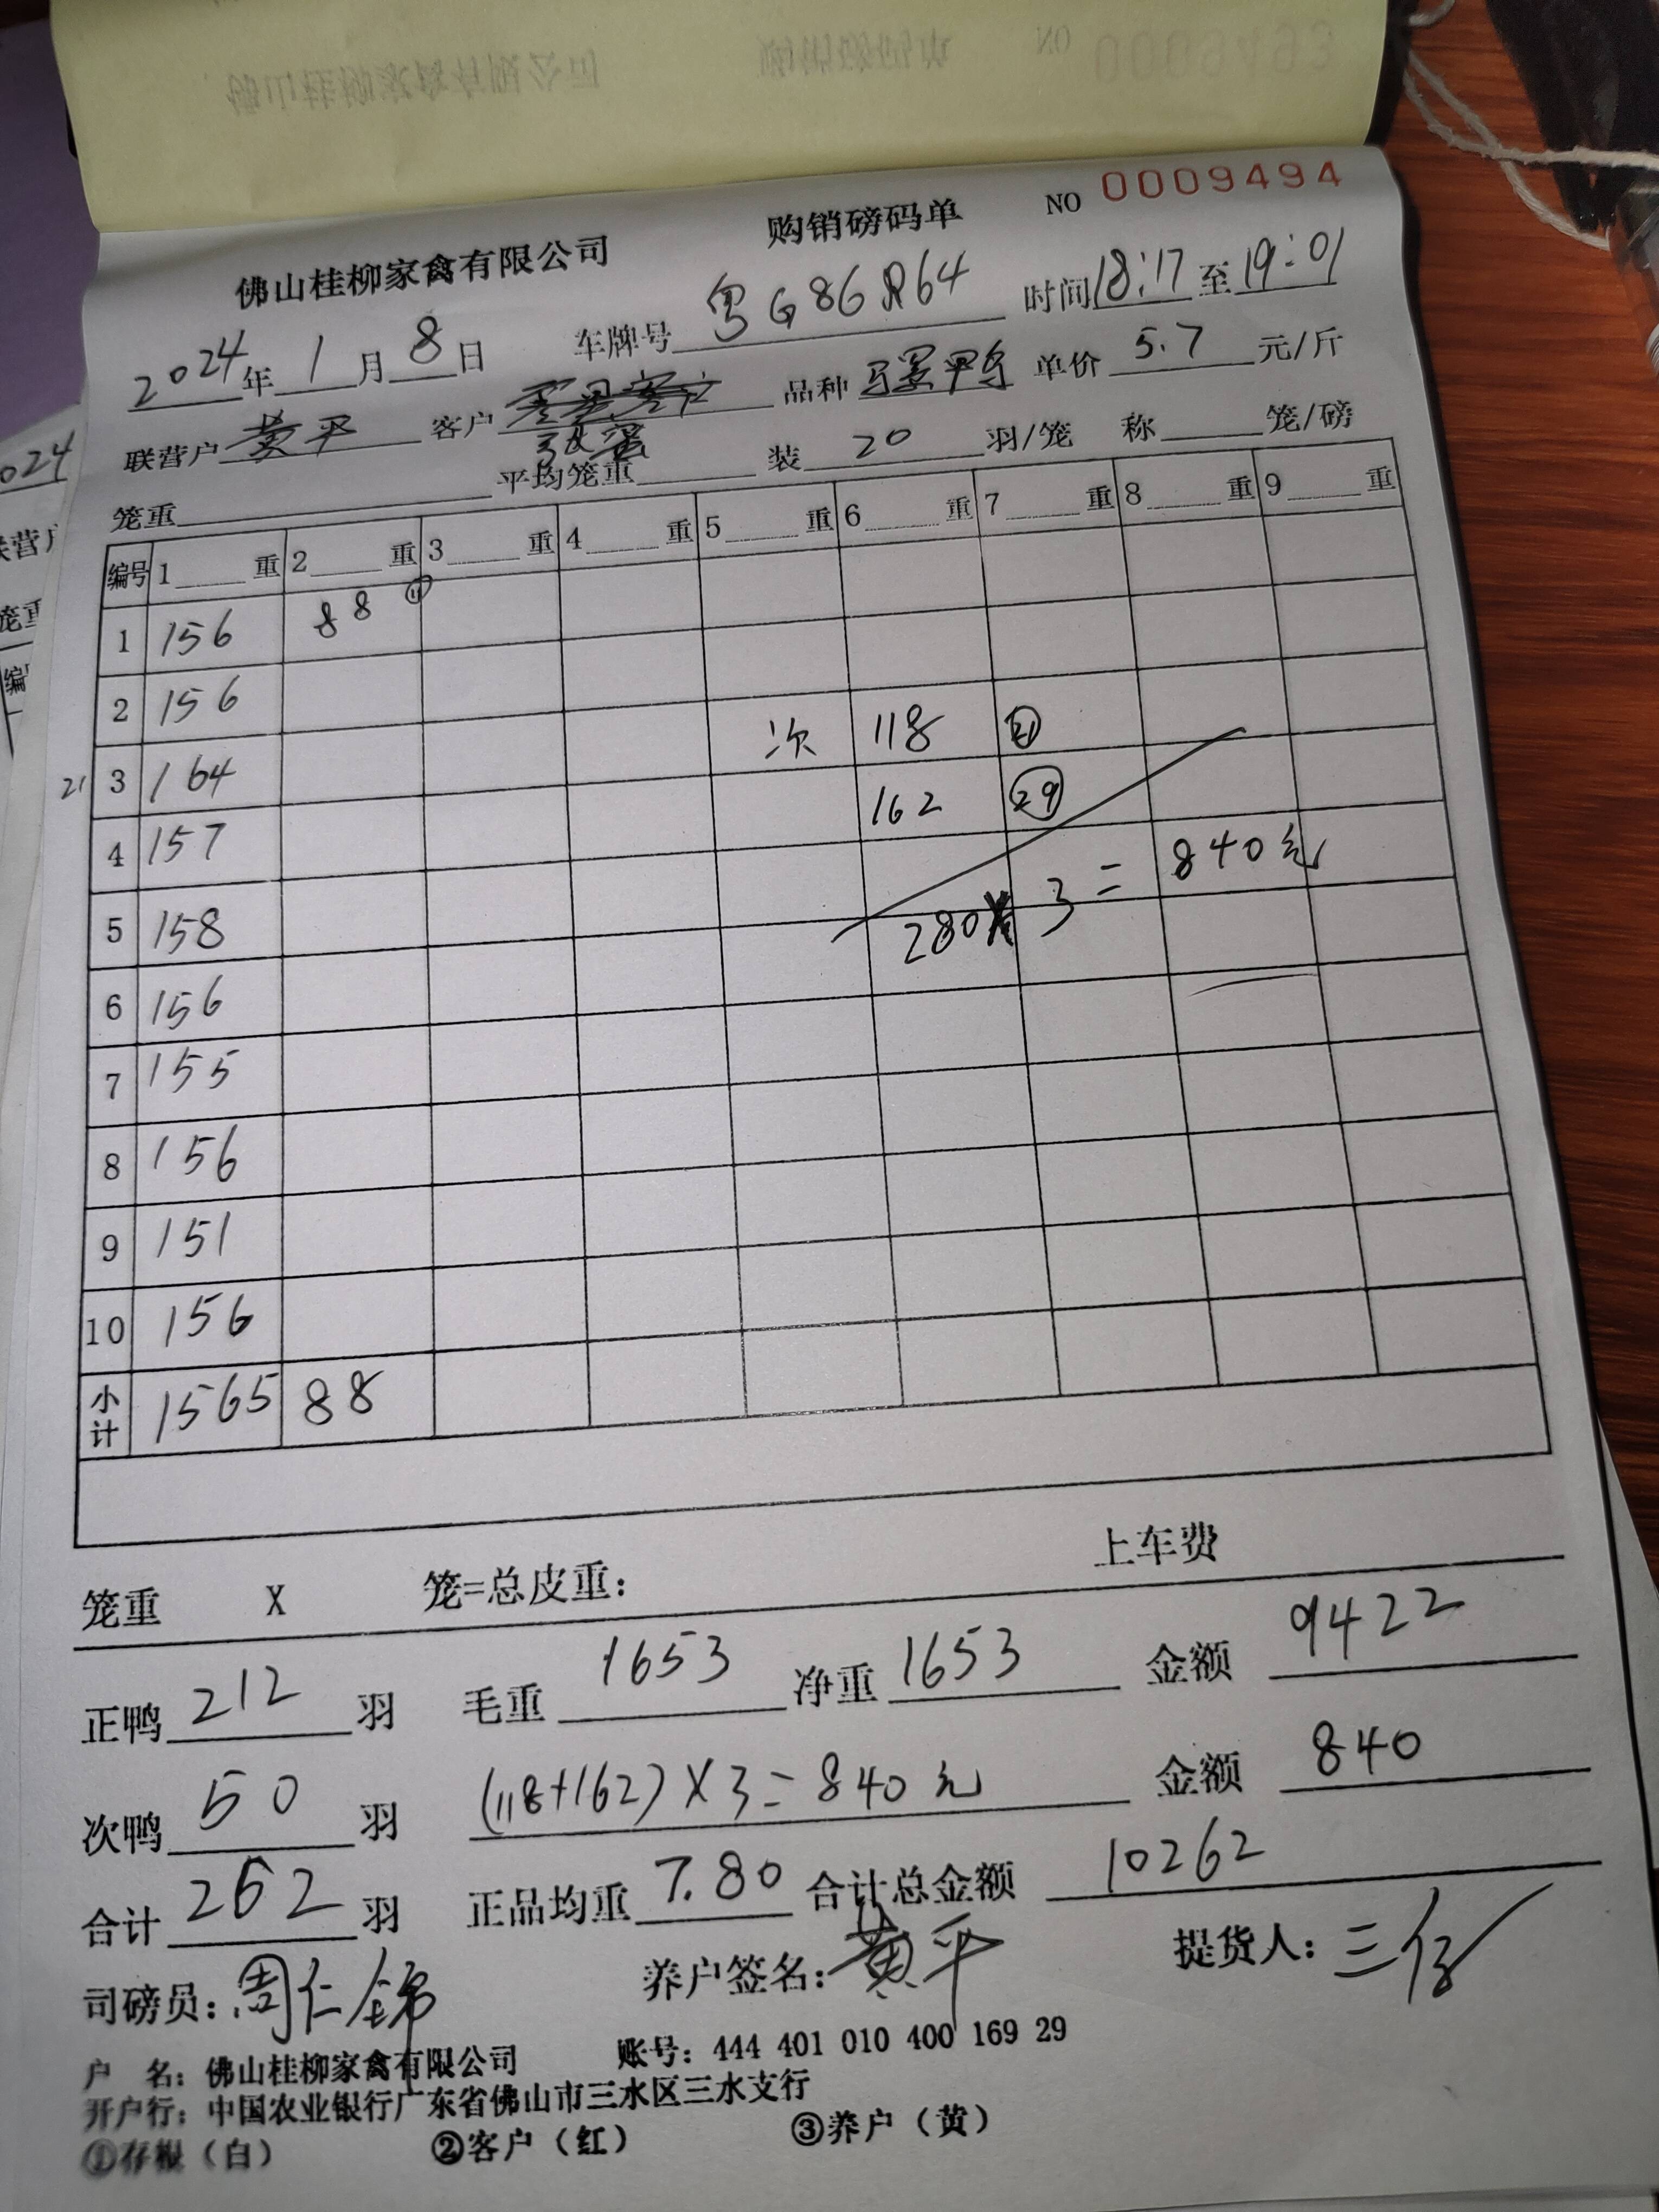 NO 0009493
佛山桂柳家禽有限公司 购销磅码单 NO 0009494
2024年1月8日 车牌号 粤G86R64 时间18:17至19:01
联营户 黄平 客户 品种 单价 5.7 元/斤
笼重 平均笼重 装 20 羽/笼 称 笼/磅
编号 1 重 2 重 3 重 4 重 5 重 6 重 7 重 8 重 9 重
1 156 88 ⑪
2 156 次 118 ㉑
21 3 164 162 ㉙
4 157 280×3=840元
5 158
6 156
7 155
8 156
9 151
10 156
小计 1565 88
笼重 X 笼=总皮重: 上车费
正鸭 212 羽 毛重 1653 净重 1653 金额 9422
次鸭 50 羽 (118+162)×3=840元 金额 840
合计 262 羽 正品均重 7.80 合计总金额 10262
司磅员: 周仁锦 养户签名: 黄平 提货人: 三仔
户 名: 佛山桂柳家禽有限公司 账号: 444 401 010 400 169 29
开户行: 中国农业银行广东省佛山市三水区三水支行
①存根（白） ②客户（红） ③养户（黄）
024
联营户
笼重
编